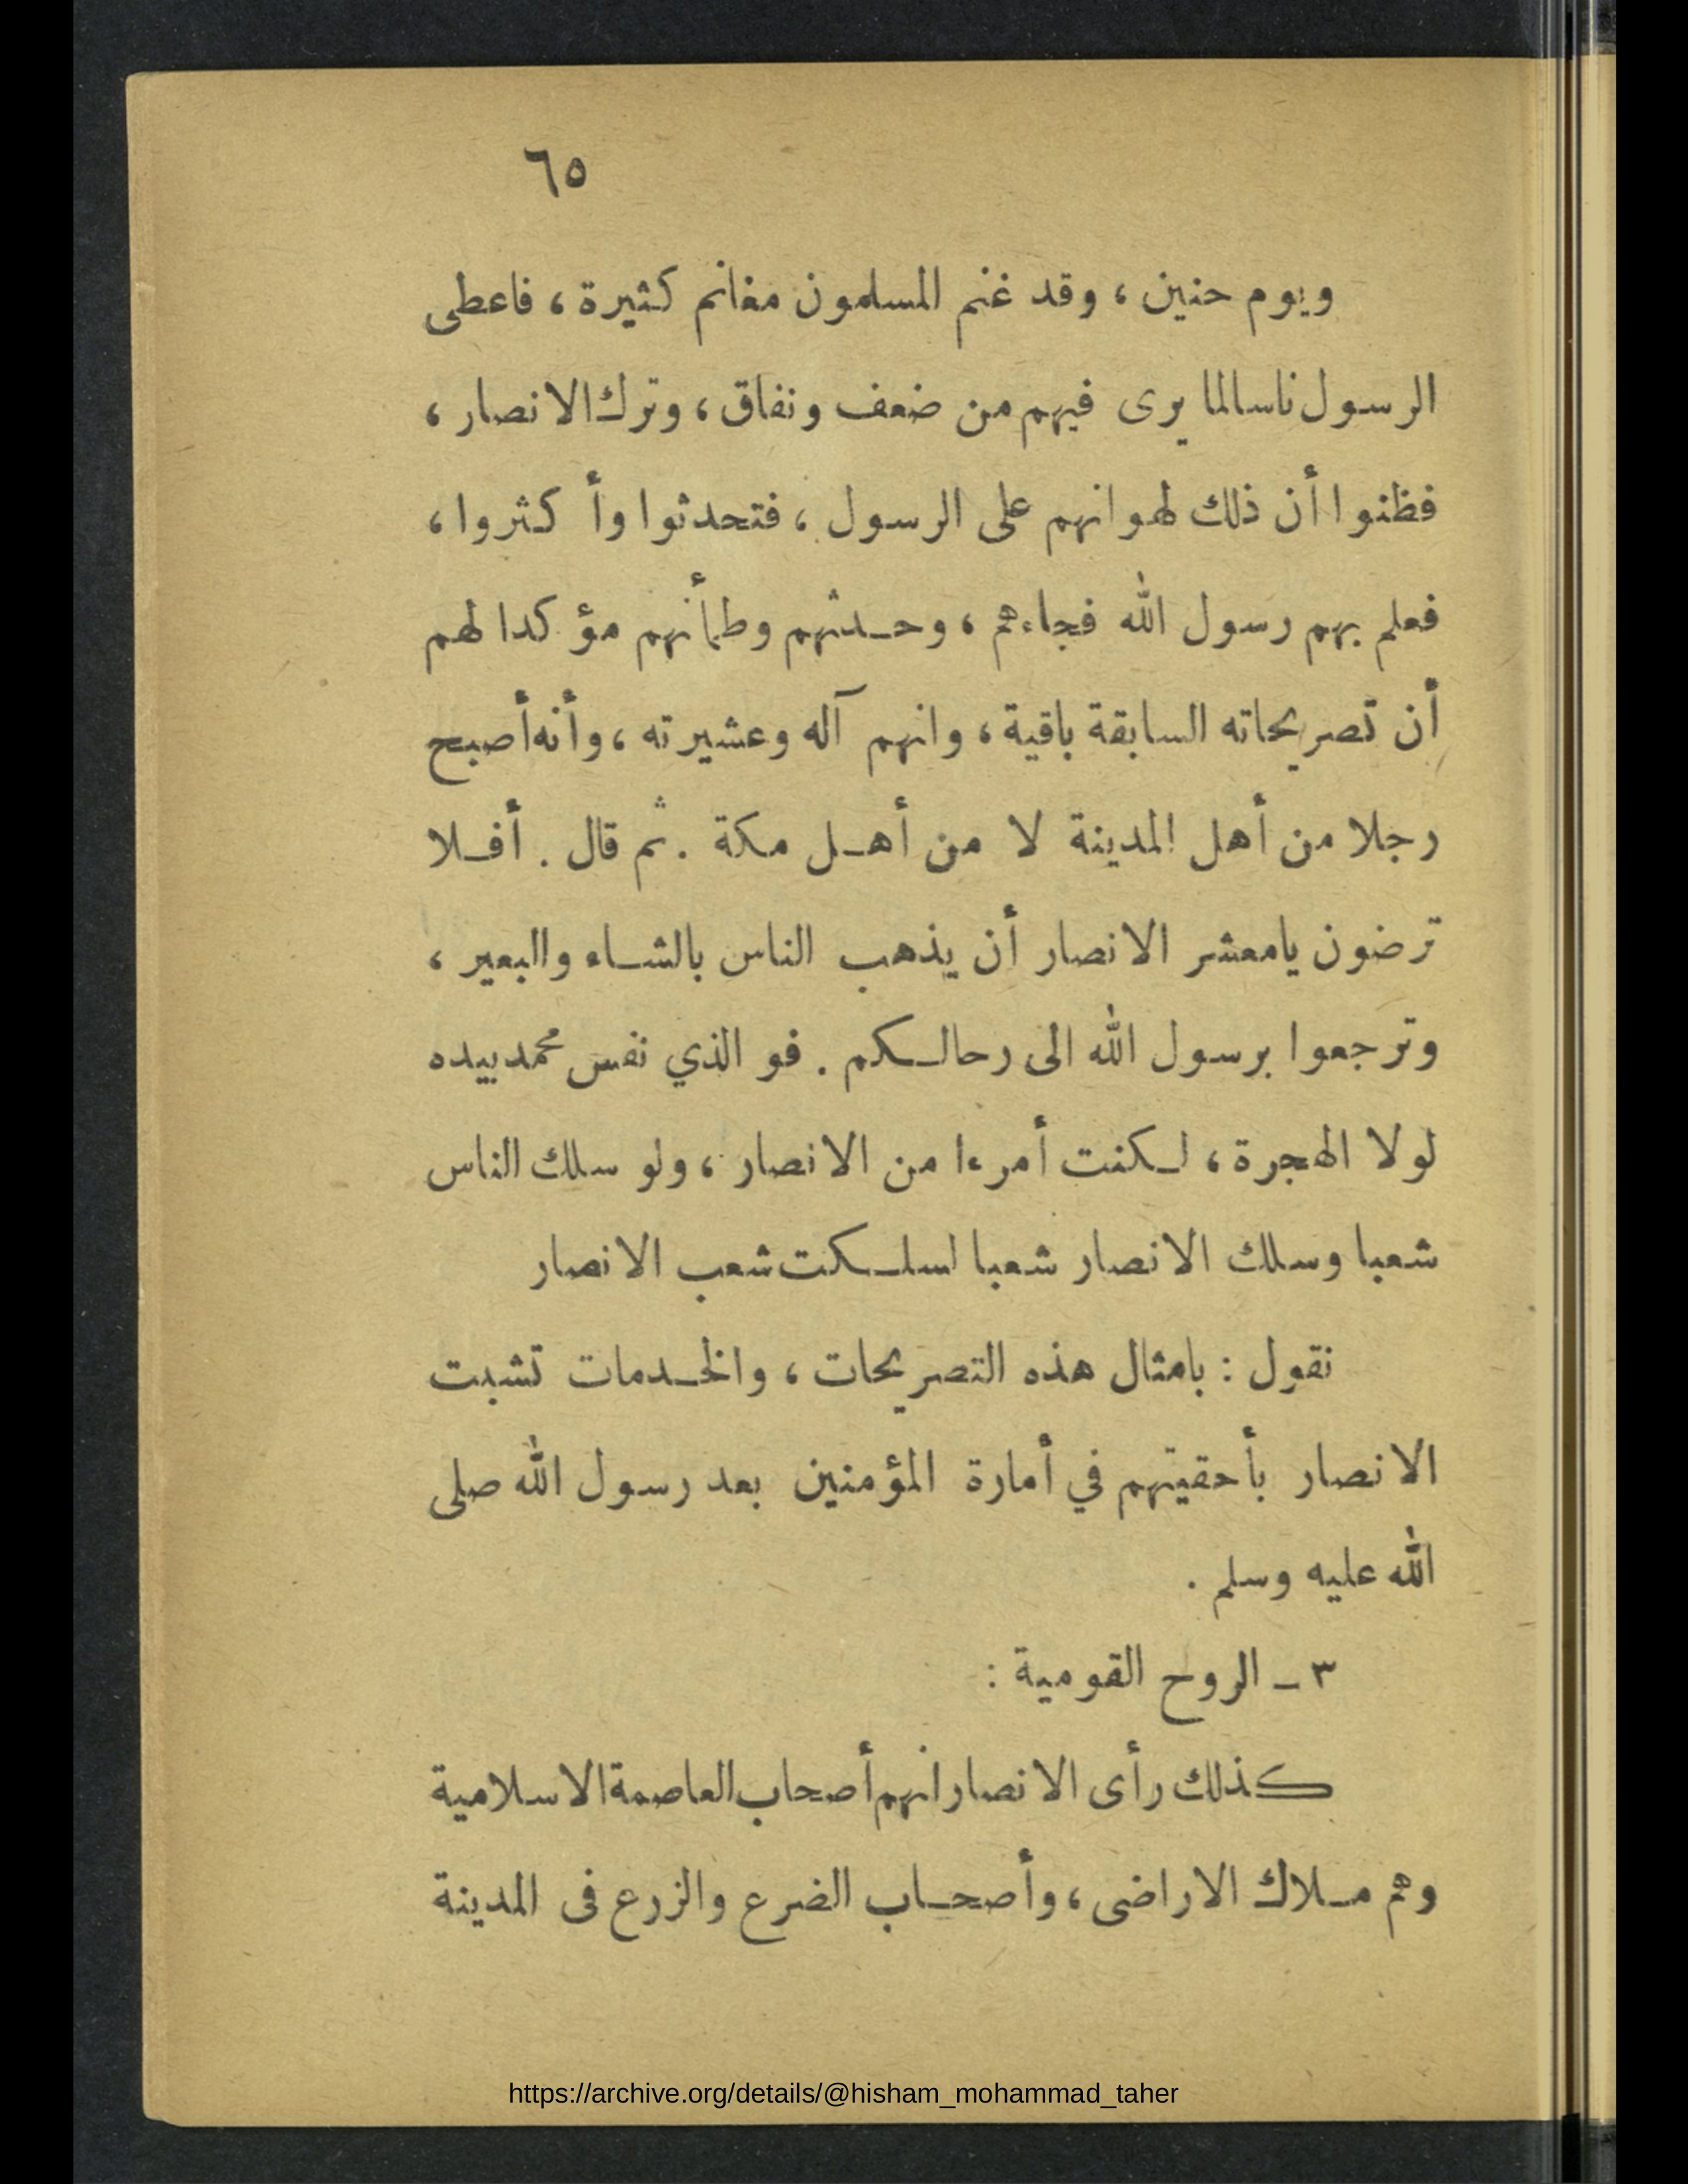 ٦٥
ويوم حنين ، وقد غنم المسلمون مغانم كثيرة ، فاعطى
الرسول ناسا لما يرى فيهم من ضعف ونفاق ، وترك الانصار ،
فظنوا أن ذلك لهوانهم على الرسول ، فتحدثوا وأكثروا ،
فعلم بهم رسول الله فجاءهم ، وحدثهم وطمأنهم مؤكدا لهم
أن تصريحاته السابقة باقية ، وانهم آله وعشيرته ، وأنه أصبح
رجلا من أهل المدينة لا من أهل مكة . ثم قال . أفلا
ترضون يامعشر الانصار أن يذهب الناس بالشاء والبعير ،
وترجعوا برسول الله الى رحالكم . فو الذي نفس محمد بيده
لولا الهجرة ، لكنت أمرءا من الانصار ، ولو سلك الناس
شعبا وسلك الانصار شعبا لسلكت شعب الانصار
نقول : بامثال هذه التصريحات ، والخدمات تشبت
الانصار بأحقيتهم في أمارة المؤمنين بعد رسول الله صلى
الله عليه وسلم .
٣ ـ الروح القومية :
كذلك رأى الانصار انهم أصحاب العاصمة الاسلامية
وهم ملاك الاراضى ، وأصحاب الضرع والزرع فى المدينة
https://archive.org/details/@hisham_mohammad_taher